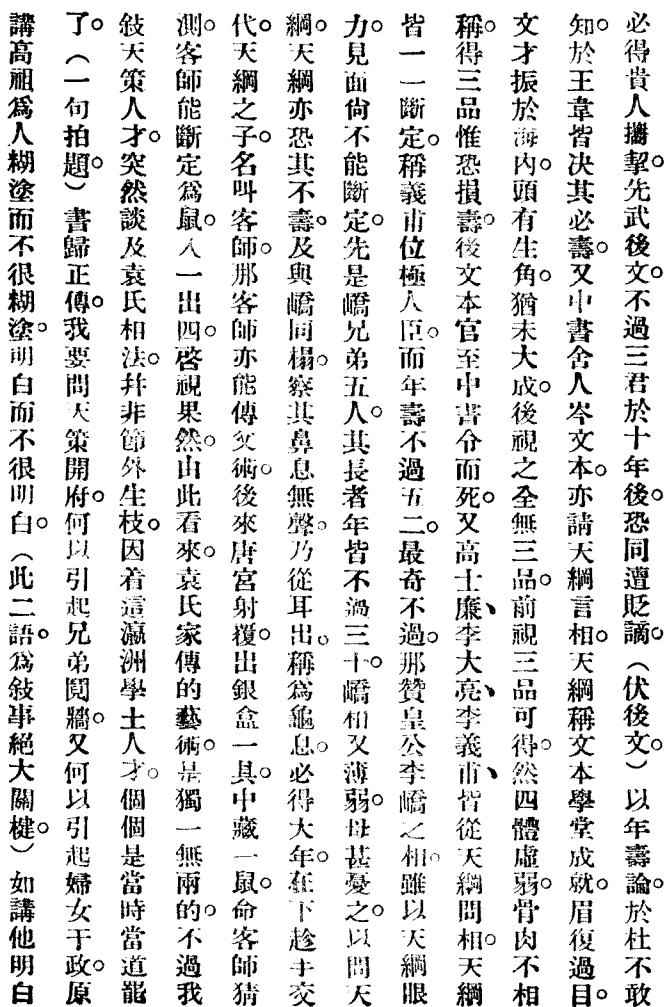 必得貴人攜挈。先武後文。不過三君於十年後。恐同遭貶謫。（伏後文。）以年壽論於杜不敢
知。於王韋皆决其必壽。又中書舍人岑文本。亦請天綱言相。天綱稱文本學堂成就。眉復過目。
文才振於海內。頭有生角。猶未大成。後視之全無三品。前視三品可得。然四體虛弱。骨肉不相
稱。得三品惟恐損壽。後文本官至中書令而死。又高士廉、李大亮、李義甫、皆從天綱問相。天綱
皆一一斷定。稱義甫位極人臣。而年壽不過五二。最奇不過。那贊皇公李嶠之相。雖以天綱眼
力。見面尙不能斷定。先是嶠兄弟五人。其長者年皆不過三十。嶠相又薄弱。母甚憂之。以問天
綱。天綱亦恐其不壽。及與嶠同榻。察其鼻息無聲。乃從耳出。稱爲龜息。必得大年。在下趁手交
代。天綱之子。名叫客師。那客師亦能傳父術。後來唐宮射覆。出銀盒一具。中藏一鼠。命客師猜
測。客師能斷定爲鼠。入一出四。啓視果然。由此看來。袁氏家傳的藝術。是獨一無兩的。不過我
敍天策人才。突然談及袁氏相法。幷非節外生枝。因着這瀛洲學士人才。個個是當時當道能
了。（一句拍題。）書歸正傳。我要問天策開府。何以引起兄弟鬩牆。又何以引起婦女干政。原
講高祖爲人糊塗而不很糊塗。明白而不很明白。（此二語爲敍事絕大關楗。）如講他明白